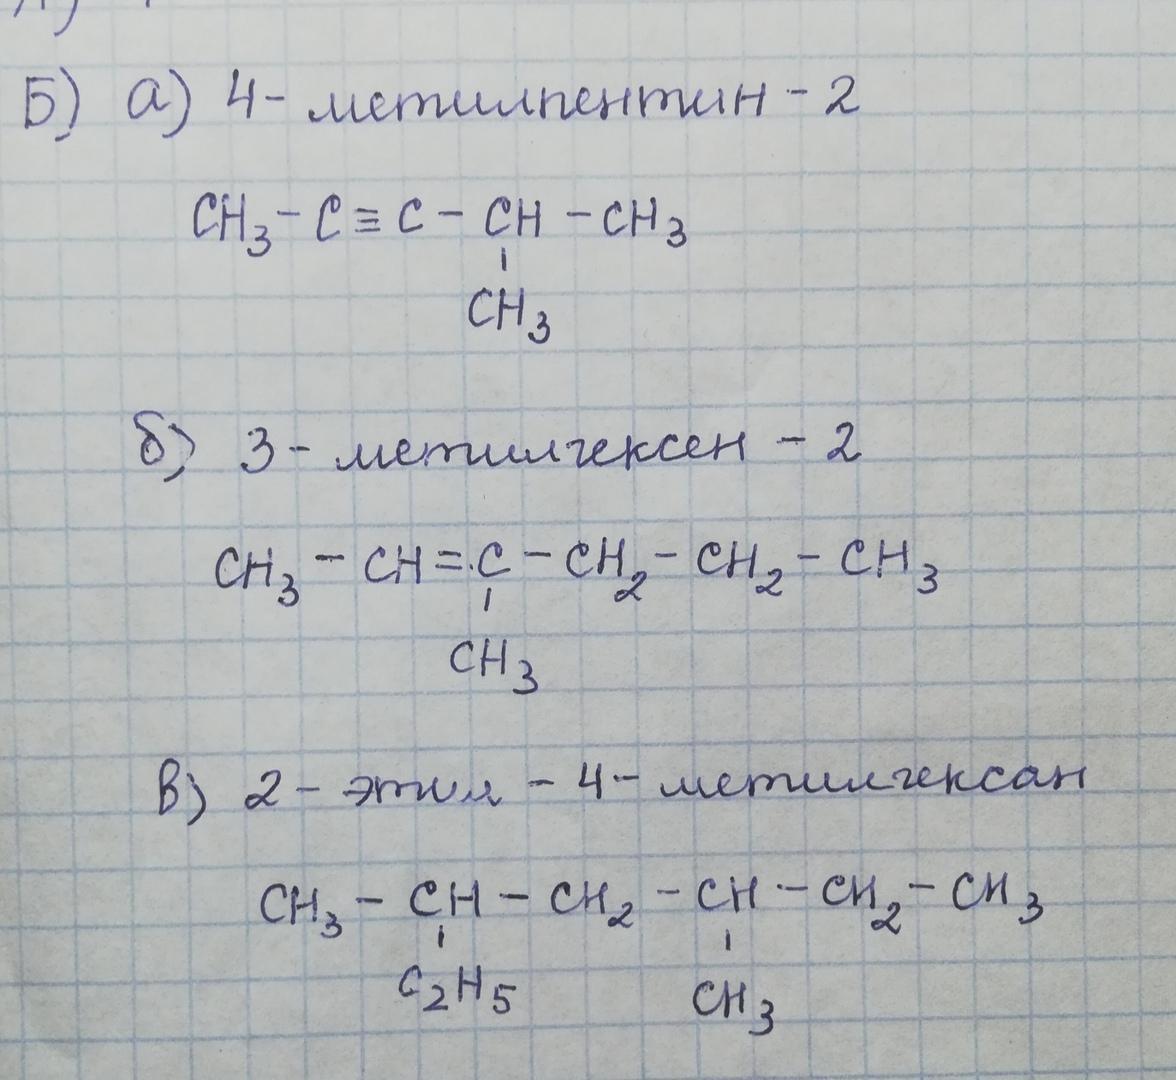 Б) а) 4- метилпентин - 2
CH3 - C ≡ C - CH - CH3
CH3
б) 3 - метилгексен - 2
CH3 - CH = C - CH2 - CH2 - CH3
CH3
в) 2 - этил - 4 - метилгексан
CH3 - CH - CH2 - CH - CH2 - CH3
C2H5 CH3